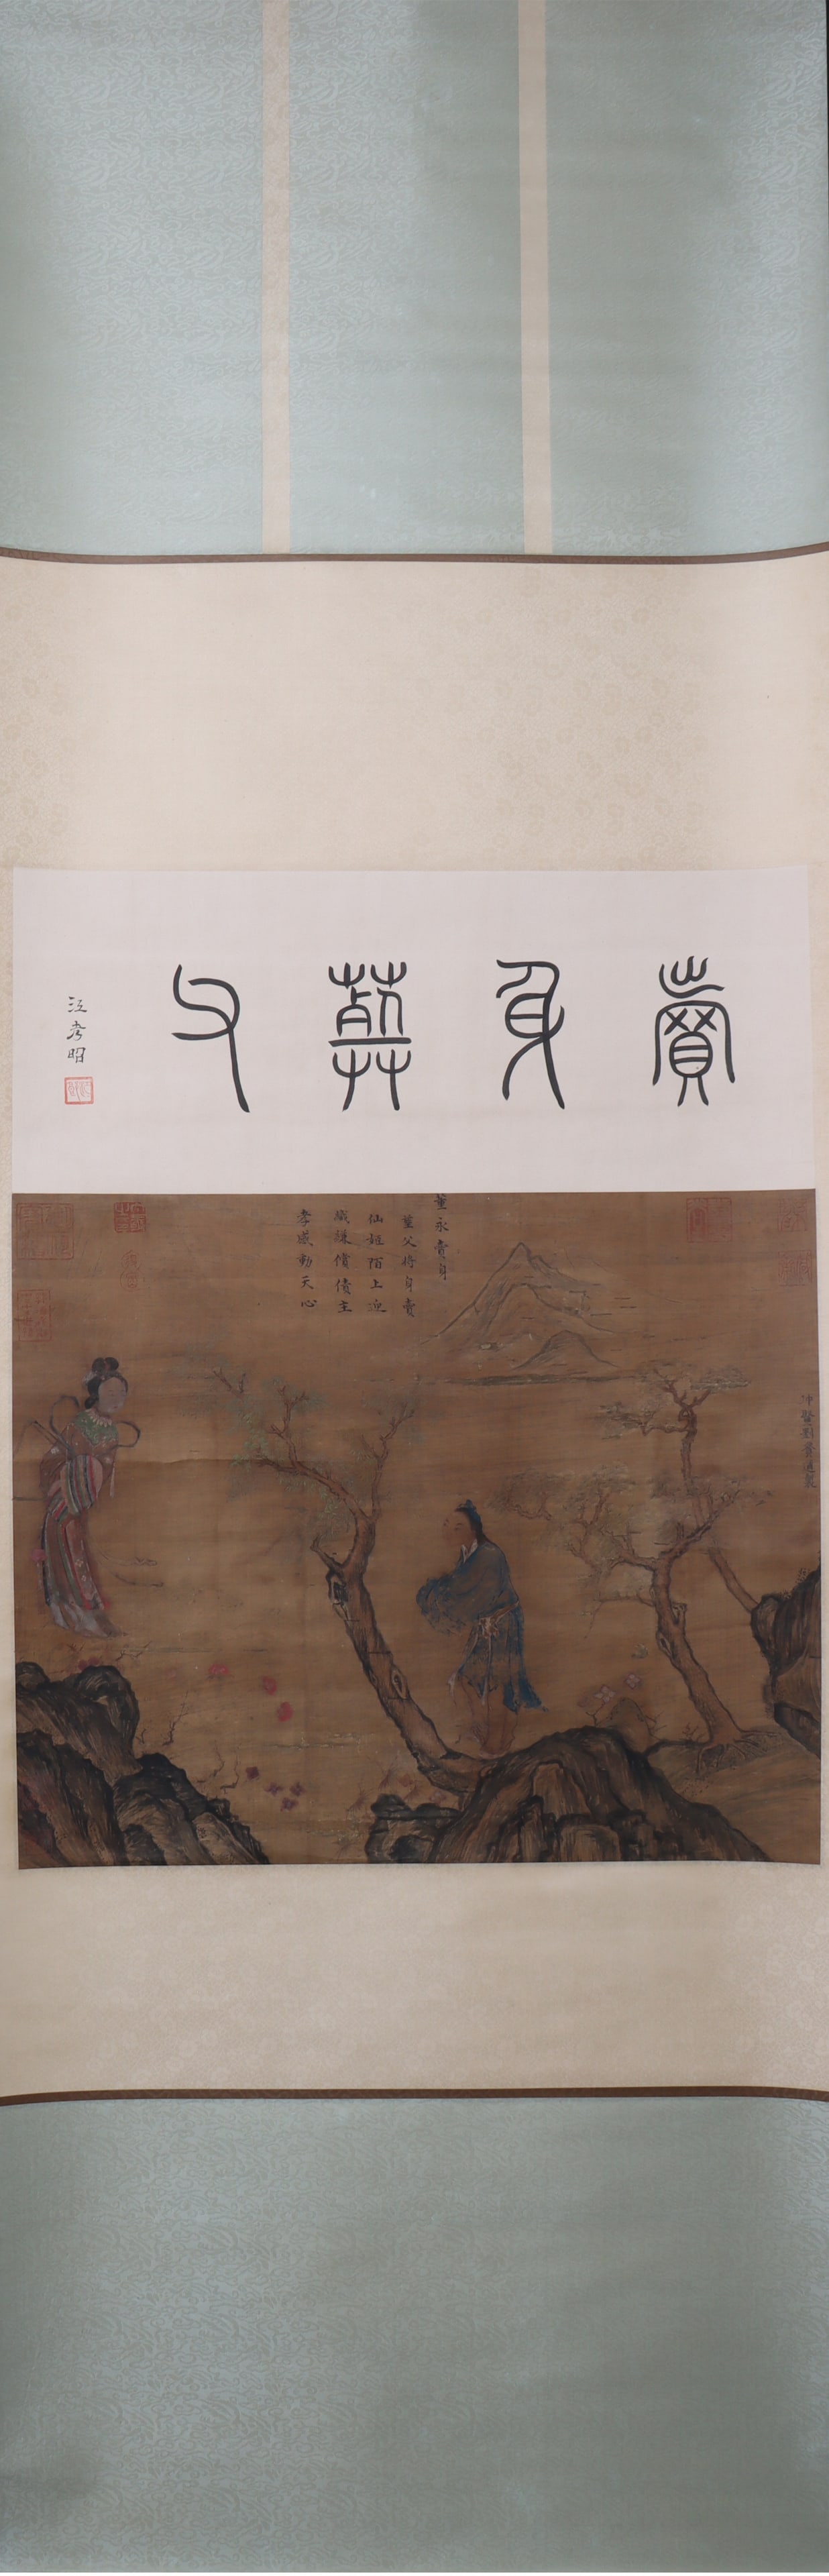 賣身葬父
江孝昭
仲賢劉貫道製
董永賣身
葬父將身賣
仙姬陌上迎
織縑償債主
孝感動天心